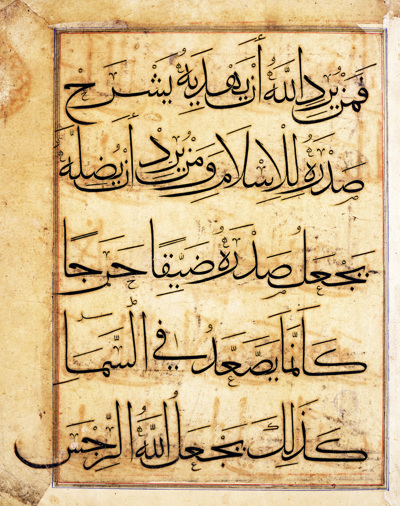 فَمَن يُرِدِ اللَّهُ أَن يَهْدِيَهُ يَشْرَحْ
صَدْرَهُ لِلْإِسْلَامِ وَمَن يُرِدْ أَن يُضِلَّهُ
يَجْعَلْ صَدْرَهُ ضَيِّقًا حَرَجًا
كَأَنَّمَا يَصَّعَّدُ فِي السَّمَاءِ
كَذَٰلِكَ يَجْعَلُ اللَّهُ الرِّجْسَ